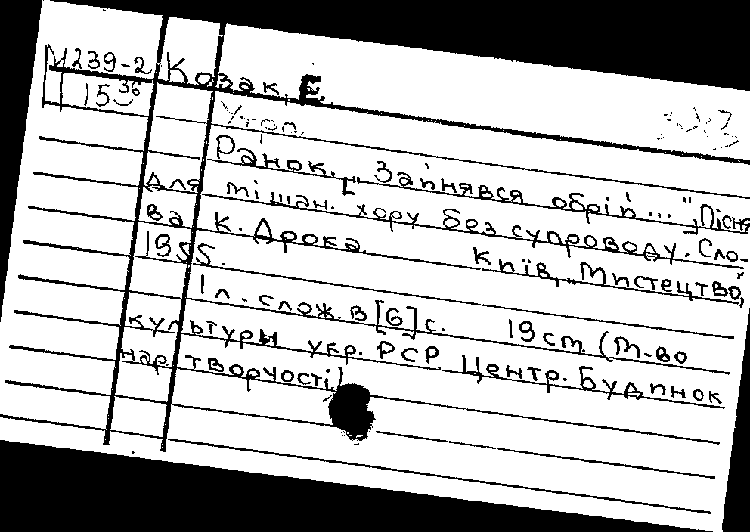 М239-2 Козак, Е.
1536
Укр.
Ранок. ["Запнявся обрій..."], Пісня
для мішан. хору без супроводу. Сло-
ва К. Дрока. Київ, "Мистецтво",
1955.
1 л. слож. в [6] с. 19 cm (М-во
культуры укр. РСР. Центр. Будинок
нар. творчості)